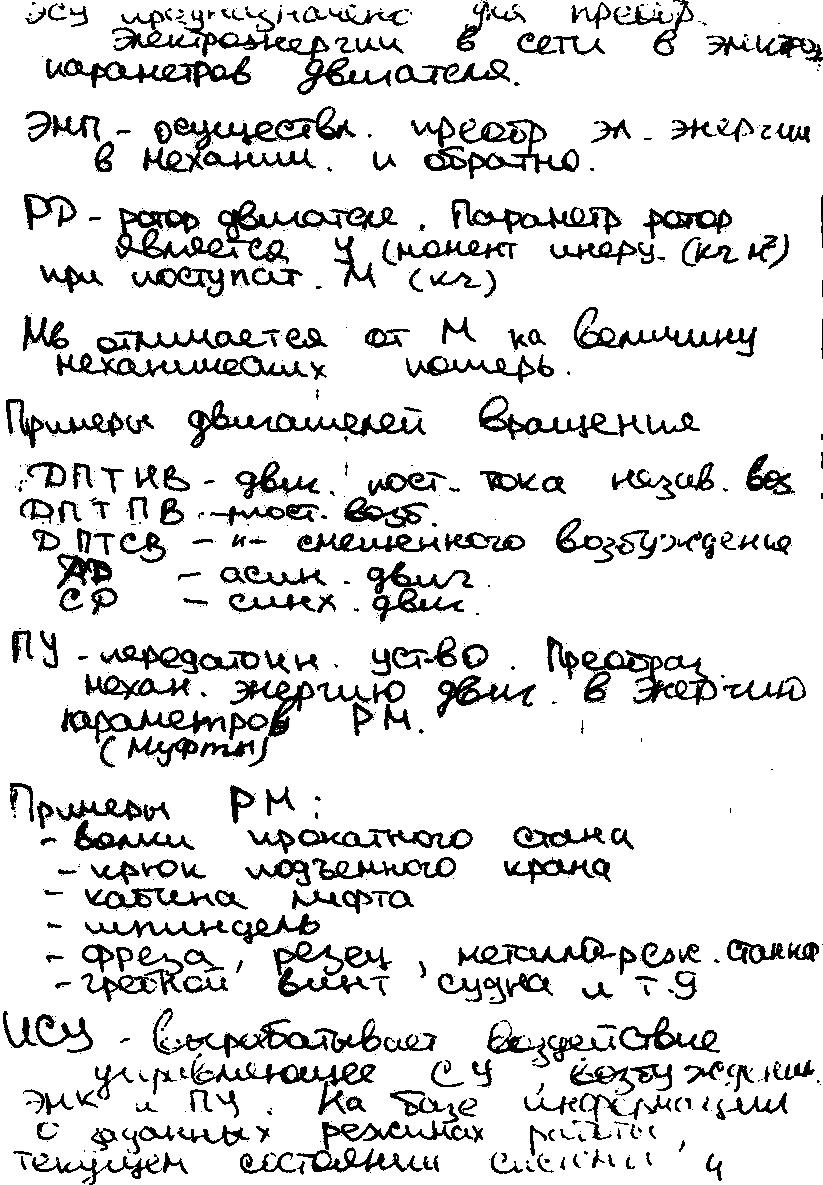 ЭСУ предназначено для преобр.
электроэнергии в сети в электро
параметров двигателя.
ЭМП - осуществл. преобр эл. энергии
в механич. и обратно.
РД - ротор двигателя. Параметр ротор
является J (момент инерц. (кг м²)
при поступат. М (кг)
Мв отличается от М на величину
механических потерь.
Примеры двигателей вращения
ДПТНВ - двиг. пост. тока незав. воз
ДПТПВ - пост. возб.
ДПТСВ - "- смешенного возбуждение
АД - асин. двиг.
СД - синх. двиг.
ПУ - передаточн. уст-во. Преобраз.
механ. энергию двиг. в энергию
параметров РМ.
(Муфты)
Примеры РМ:
- валки прокатного стана
- крюк подъемного крана
- кабина лифта
- шпиндель
- фреза, резец, металло-реж. станка
- гребной винт судна и т.д
ИСУ - вырабатывает воздействие
управляющее СУ, возбуждении.
ЭМК и ПУ. На базе информации
о заданных режимах работы,
текущем состоянии системы и